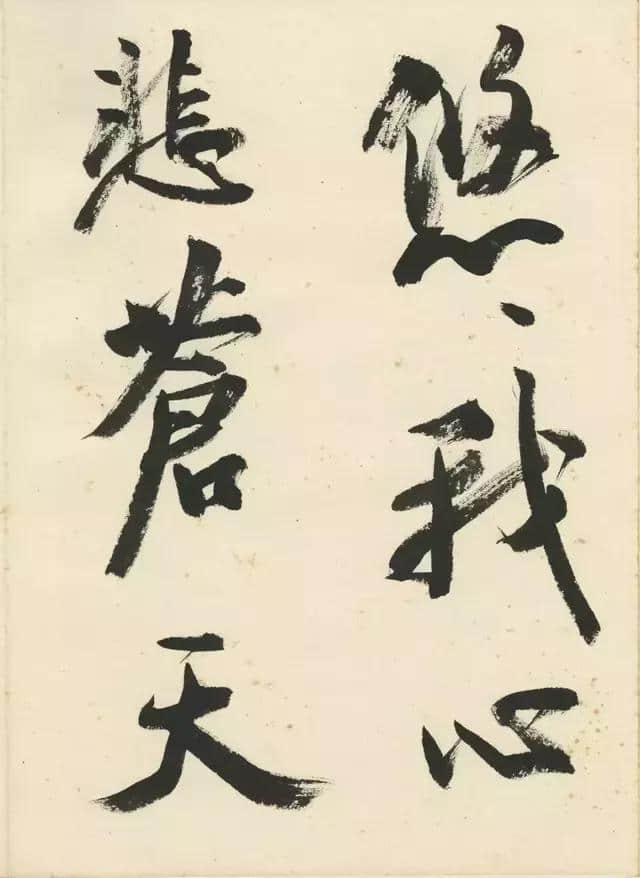 悠〻我心
悲蒼天